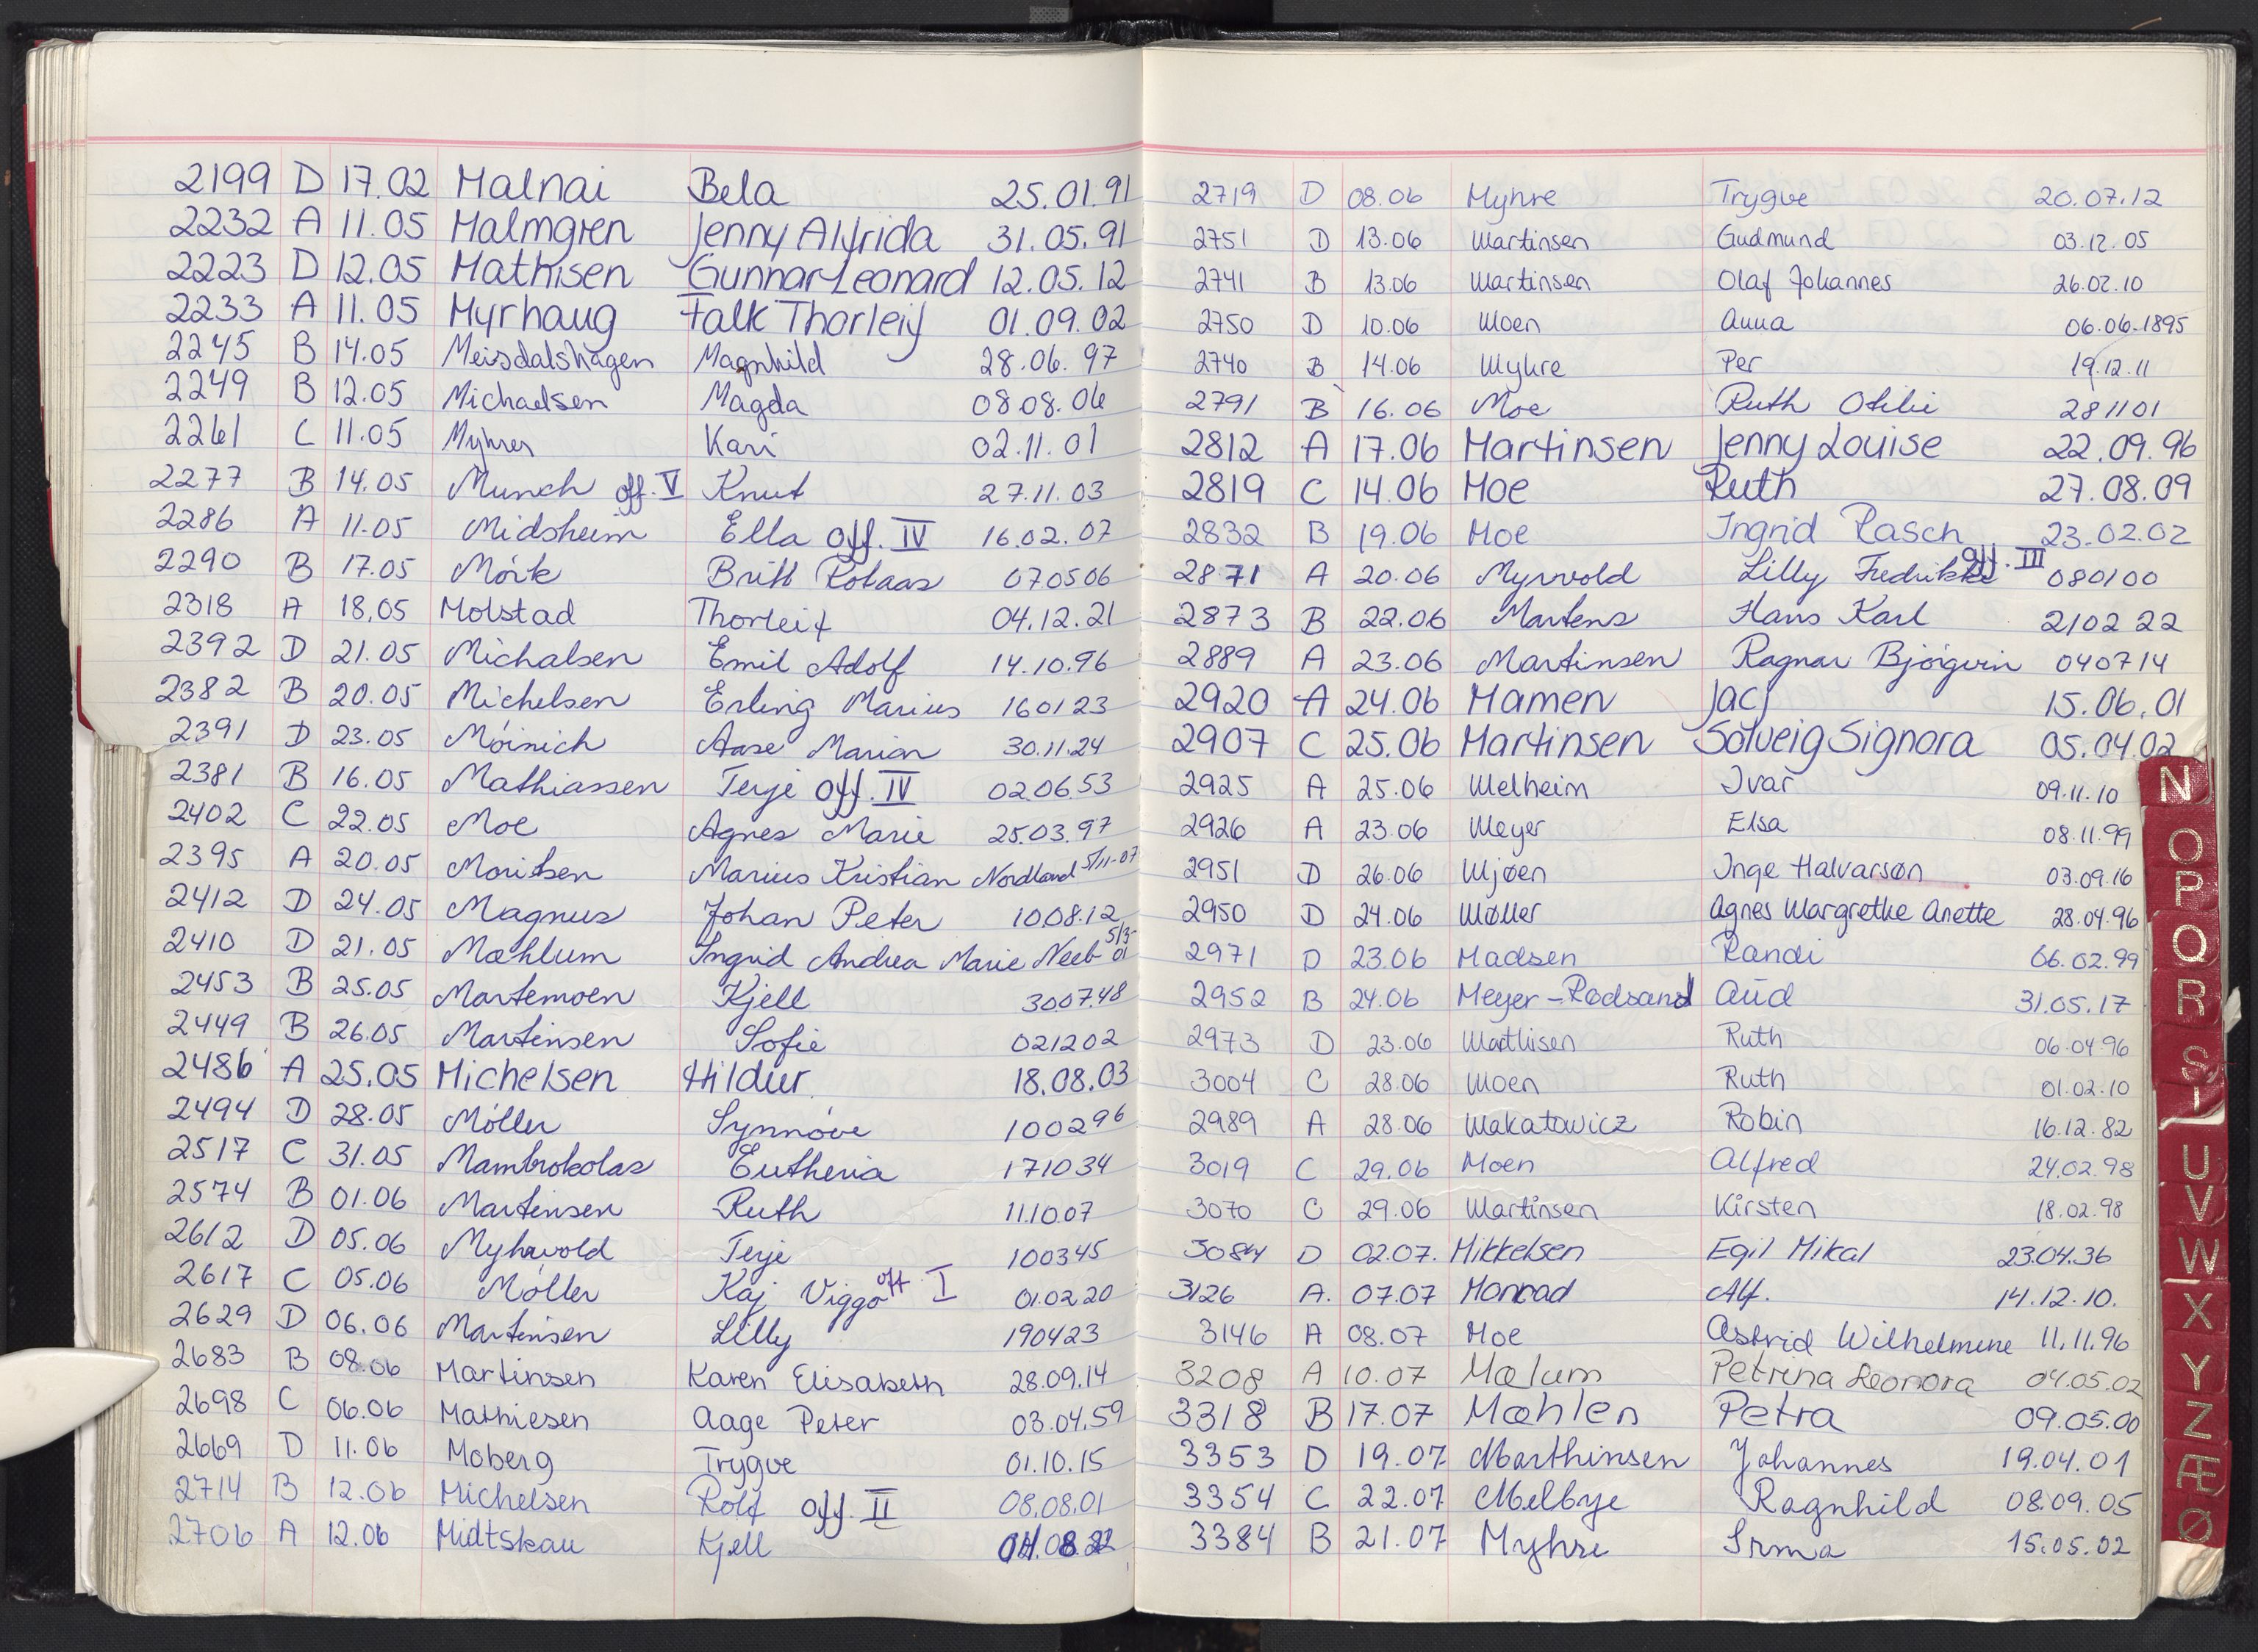 2199 D 17.02 Malnai Bela 25.01.91
2232 A 11.05 Malmgren Jenny Alfrida 31.05.91
2223 D 12.05 Mathisen Gunnar Leonard 12.05.12
2233 A 11.05 Myrhaug Falk Thorleif 01.09.02
2245 B 14.05 Meisdalshagen Magnhild 28.06.97
2249 B 12.05 Michaelsen Magda 08.08.06
2261 C 11.05 Myhrer Kari 02.11.01
2277 B 14.05 Munch off. V Knut 27.11.03
2286 A 11.05 Midsheim Ella off. IV 16.02.07
2290 B 17.05 Mörk Britt Rolaas 070506
2318 A 18.05 Molstad Thorleif 04.12.21
2392 D 21.05 Michalsen Emil Adolf 14.10.96
2382 B 20.05 Michelsen Erling Marius 160123
2391 D 23.05 Möinich Aase Marian 30.11.24
2381 B 16.05 Mathiassen Terje off. IV 02.06.53
2402 C 22.05 Moe Agnes Marie 25.03.97
2395 A 20.05 Moritsen Marius Kristian Nordland 5/11-07
2412 D 24.05 Magnus Johan Peter 10.08.12
2410 D 21.05 Mæhlum Ingrid Andrea Marie Neeb 5/3-01
2453 B 25.05 Martemoen Kjell 300748
2449 B 26.05 Martinsen Sofie 021202
2486 A 25.05 Michelsen Hildur 18.08.03
2494 D 28.05 Möller Synnöve 100296
2517 C 31.05 Mambrokolas Eutheria 171034
2574 B 01.06 Martinsen Ruth 11.10.07
2612 D 05.06 Myhrvold Terje 100345
2617 C 05.06 Möller Kaj Viggo off. I 01.02.20
2629 D 06.06 Martinsen Lilly 190423
2683 B 08.06 Martinsen Karen Elisabeth 28.09.14
2698 C 06.06 Mathiesen Aage Peter 03.04.59
2669 D 11.06 Moberg Trygve 01.10.15
2714 B 12.06 Michelsen Rolf off. II 08.08.01
2706 A 12.06 Midtskau Kjell
2719 D 08.06 Myhre Trygve 20.07.12
2751 D 13.06 Martinsen Gudmund 03.12.05
2741 B 13.06 Martinsen Olaf Johannes 26.02.10
2750 D 10.06 Moen Anna 06.06.1895
2740 B 14.06 Myhre Per 19.12.11
2791 B 16.06 Moe Ruth Otilie 281101
2812 A 17.06 Martinsen Jenny Louise 22.09.96
2819 C 14.06 Moe Ruth 27.08.09
2832 B 19.06 Moe Ingrid Rasch 23.02.02
2871 A 20.06 Myrvold Lilly Fredrikke off. III 080100
2873 B 22.06 Martens Hans Karl 210222
2889 A 23.06 Martinsen Ragnar Björgvin 040714
2920 A 24.06 Mamen Jacj 15.06.01
2907 C 25.06 Martinsen Solveig Signora 05.04.02
2925 A 25.06 Melheim Ivar 09.11.10
2926 A 23.06 Meyer Elsa 08.11.99
2951 D 26.06 Mjøen Inge Halvarsøn 03.09.16
2950 D 24.06 Møller Agnes Margrethe Anette 28.04.96
2971 D 23.06 Madsen Randi 06.02.99
2952 B 24.06 Meyer-Rødsand Aud 31.05.17
2973 D 23.06 Mathisen Ruth 06.04.96
3004 C 28.06 Moen Ruth 01.02.10
2989 A 28.06 Makatowicz Robin 16.12.82
3019 C 29.06 Moen Alfred 24.02.98
3070 C 29.06 Martinsen Kirsten 18.02.98
3084 D 02.07. Mikkelsen Egil Mikal 23.04.36
3126 A. 07.07 Monrad Alf. 14.12.10.
3146 A 08.07 Moe Astrid Wilhelmine 11.11.96
3208 A 10.07 Mælum Petrina Leonora 04.05.02
3318 B 17.07 Mæhlen Petra 09.05.00
3353 D 19.07 Marthinsen Johannes 19.04.01
3354 C 22.07 Melbye Ragnhild 08.09.05
3384 B 21.07 Myhre Irma 15.05.02
N
O
P
Q
R
S
T
U
V
W
X
Y
Z
Æ
Ø